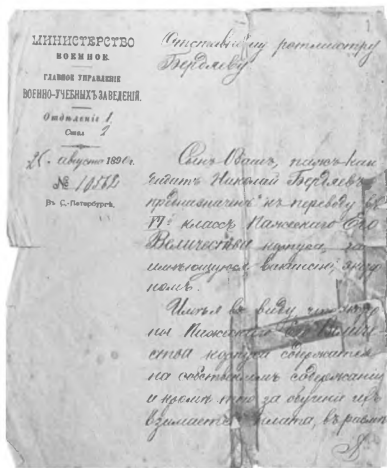 МИНИСТЕРСТВО
ВОЕННОЕ.
ГЛАВНОЕ УПРАВЛЕНІЕ
ВОЕННО-УЧЕБНЫХЪ ЗАВЕДЕНІЙ.
Отдѣленіе 1.
Столъ 2
25 августа 1890 г.
№
Въ С.-Петербургѣ.
Отставному ротмистру
Бердяеву
Сынъ Вашъ, пажъ-кан
дитатъ Николай Бердяевъ
предназначенъ къ переводу въ
класъ Пажескаго Его
Величества корпуса, за
имѣющуюся вакансію, экстер
номъ.
Имѣя въ виду что
ны Пажескаго
ства корпуса содержатся
на собственномъ содержаніи
и кромѣ того за обученіе ихъ
взимается плата, въ